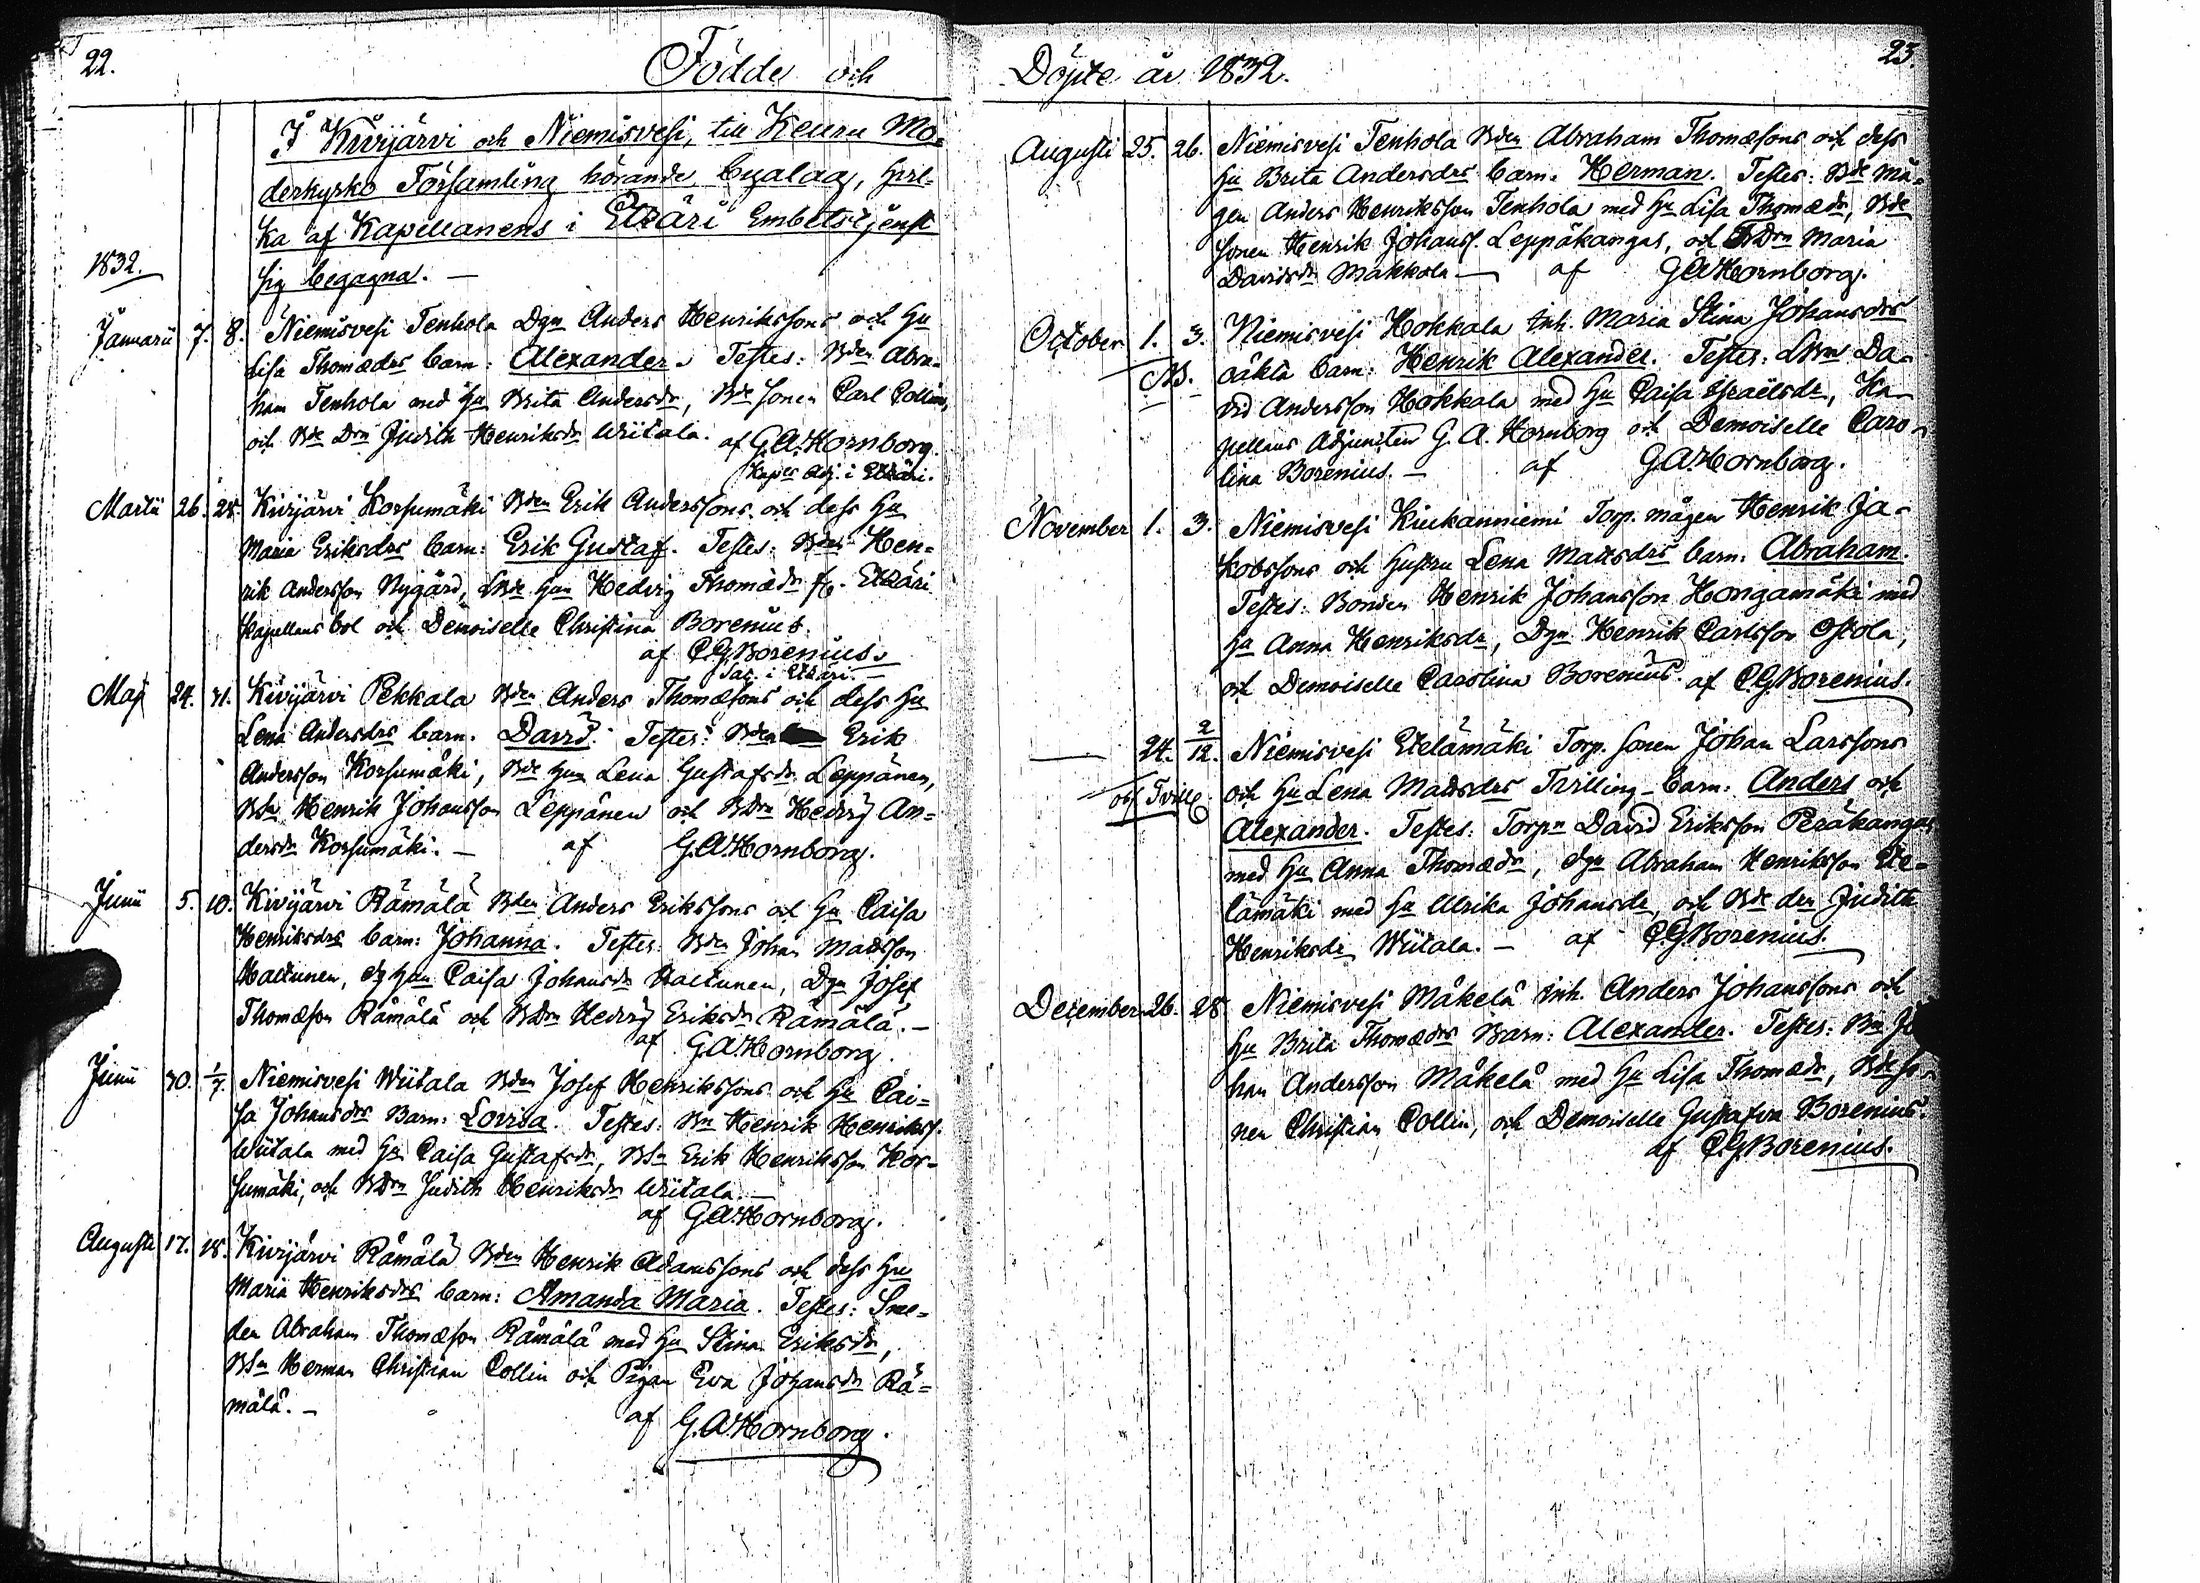 22.
Födde och
I Kivijärvi och Niemisvesi, till Keuru Mo-
derkyrko Församling hörande byalag, hvil-
ka af Kapellanens i Etzäri Embetstjenst
1832.
sig begagna. —
Januarii 7. 8. Niemisvesi Tenhola Dgn Anders Henrikssons och Hu
Lisa Thomædrs barn: Alexander. Testes: Bden Abra-
ham Tenhola med Hu Brita Andersdr, Bde Sonen Carl Collin,
och Bde Drn Judith Henriksdr Wiitala. af G.A.Hornborg.
Kaps Adj. i Etzäri.
Martii 26. 28. Kivijärvi Korsumäki Bden Erik Anderssons och dess Hu
Maria Eriksdrs barn: Erik Gustaf. Testes: Bden Hen-
rik Andersson Nygård, Hun Hedvig Thomædr fr. Etzäri
Kapellans bol och Demoiselle Christina Borenius.
af C.G.Borenius.
Sac. i Etzäri. —
Maji 24. 31. Kivijärvi Pekkala Bden Anders Thomæsons och dess Hu
Lena Andersdrs barn. David. Testes: Bden Erik
Andersson Korsumäki, Bde Hun Lena Gustafsdr Leppänen,
BSn Henrik Johansson Leppänen och BDrn Hedvig An-
dersdr Korsumäki. — af G.A.Hornborg.
Junii 5. 10. Kivijärvi Rämälä Bden Anders Erikssons och Hu Caisa
Henriksdrs barn: Johanna. Testes: Bden Johan Mattsson
Haltunen, Hun Caisa Johansdr Haltunen, Dgn Josef
Thomæson Rämälä och BDrn Hedvig Eriksdr Rämälä. —
af G.A.Hornborg.
Junii 30. 1/7. Niemisvesi Wiitala Bden Josef Henrikssons och Hu Cai-
sa Johansdrs Barn: Lovisa. Testes: Bn Henrik Henrikss.
Wiitala med Hu Caisa Gustafsdr, BSn Erik Henriksson Kor-
sumäki, och BDrn Judith Henriksdr Wiitala. —
af G.A.Hornborg.
Augusti 17. 18. Kivijärvi Rämälä Bden Henrik Adamssons och dess Hu
Maria Henriksdrs barn: Amanda Maria. Testes: Sme-
den Abraham Thomæson Rämälä med Hu Stina Eriksdr,
BSn Herman Christian Collin och Pigan Eva Johansdr Rä-
mälä. — af G.A.Hornborg.
23.
Döpte år 1832.
Augusti 25. 26. Niemisvesi Tenhola Bden Abraham Thomæsons och dess
Hu Brita Andersdrs barn. Herman. Testes: Bde Må-
gen Anders Henriksson Tenhola med Hu Lisa Thomædr, Bde
Sonen Henrik Johanss. Leppäkangas, och BDrn Maria
Davidsdr Makkola — af G.A.Hornborg.
October 1. 3. Niemisvesi Hokkala Inh. Maria Stina Johansdrs
NB. oäkta barn: Henrik Alexander. Testes: Da-
vid Andersson Hokkala med Hu Caisa Israelsdr, Ka-
pellans Adjuncten G. A. Hornborg och Demoiselle Caro-
lina Borenius. — af G.A.Hornborg.
November 1. 3. Niemisvesi Kiukanniemi Torp. mågen Henrik Ja-
kobssons och Hustru Lena Mattsdrs barn: Abraham.
Testes: Bonden Henrik Johansson Hongamäki med
Hu Anna Henriksdr, Dgn Henrik Carlsson Ostola,
och Demoiselle Carolina Borenius. af C.G.Borenius.
— 24. 2/12. Niemisvesi Etelämäki Torp. Sonen Johan Larssons
Tvill. och Hu Lena Mattsdrs Tvilling-barn: Anders och
Alexander. Testes: Torpn David Eriksson Peräkangas
med Hu Anna Thomædr, dgn Abraham Henriksson Ete-
lämäki med Hu Ulrika Johansdr, och Bde drn Judith
Henriksdr Wiitala. — af C.G.Borenius.
December 26. 28. Niemisvesi Mäkelä Inh. Anders Johanssons och
Hu Brita Thomædrs Barn: Alexander. Testes: Bn Jo
han Andersson Mäkelä med Hu Lisa Thomædr, Bde So-
nen Christian Collin, och Demoiselle Gustafva Borenius.
af C.G.Borenius.